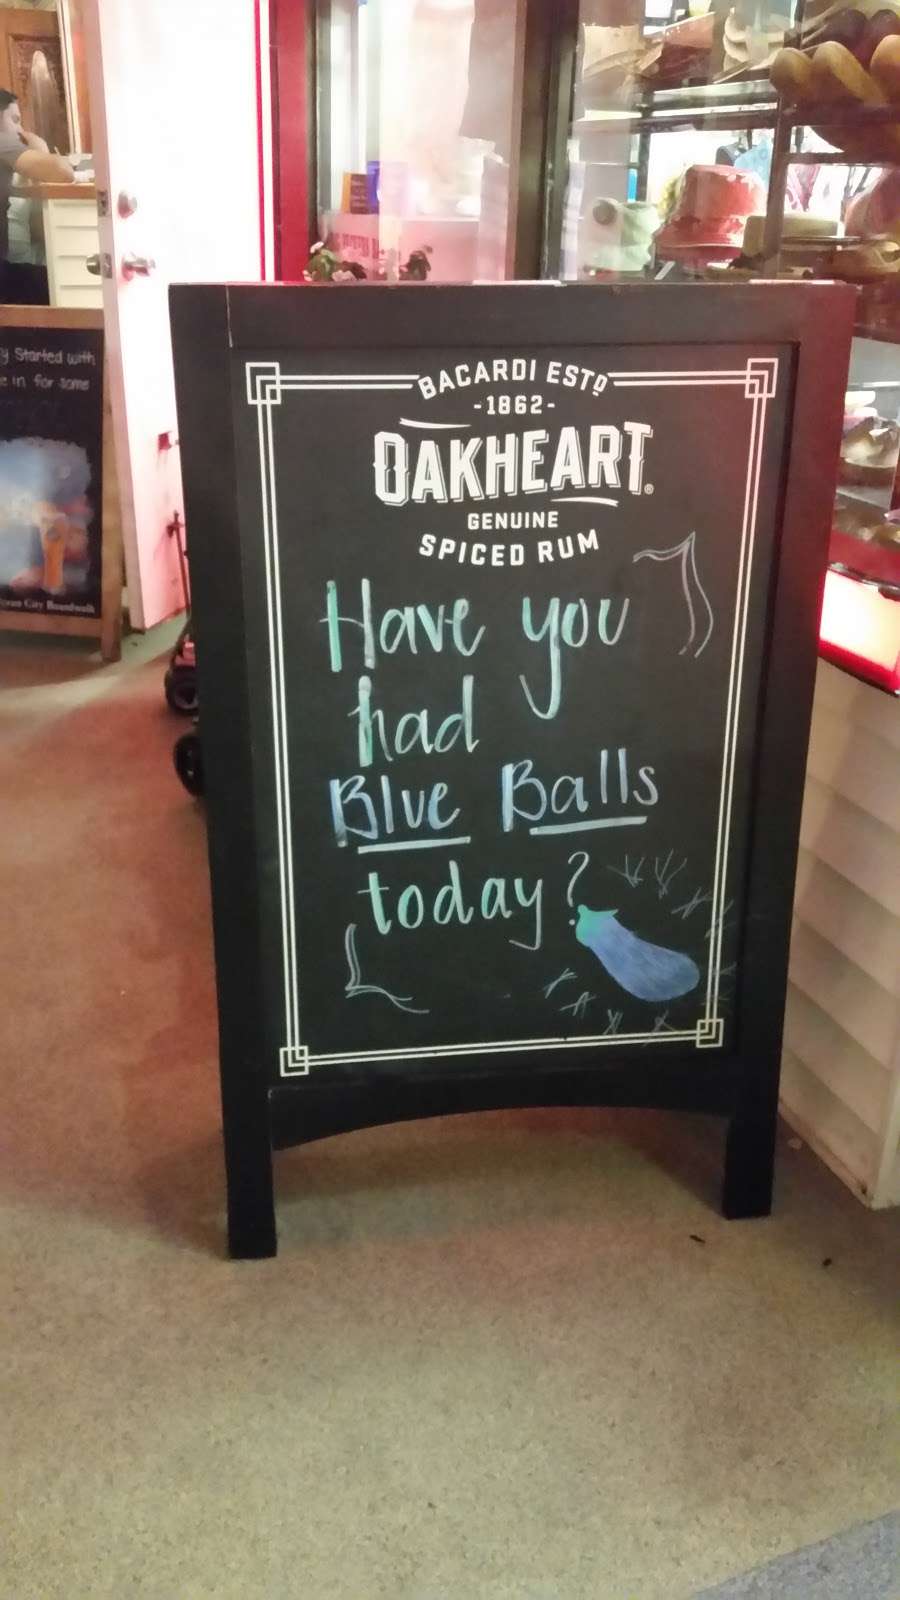 BACARDI ESTD
-1862-
OAKHEART®
GENUINE
SPICED RUM
Have you
had
Blue Balls
today?
y Started with
e in for some
Ocean City Boardwalk